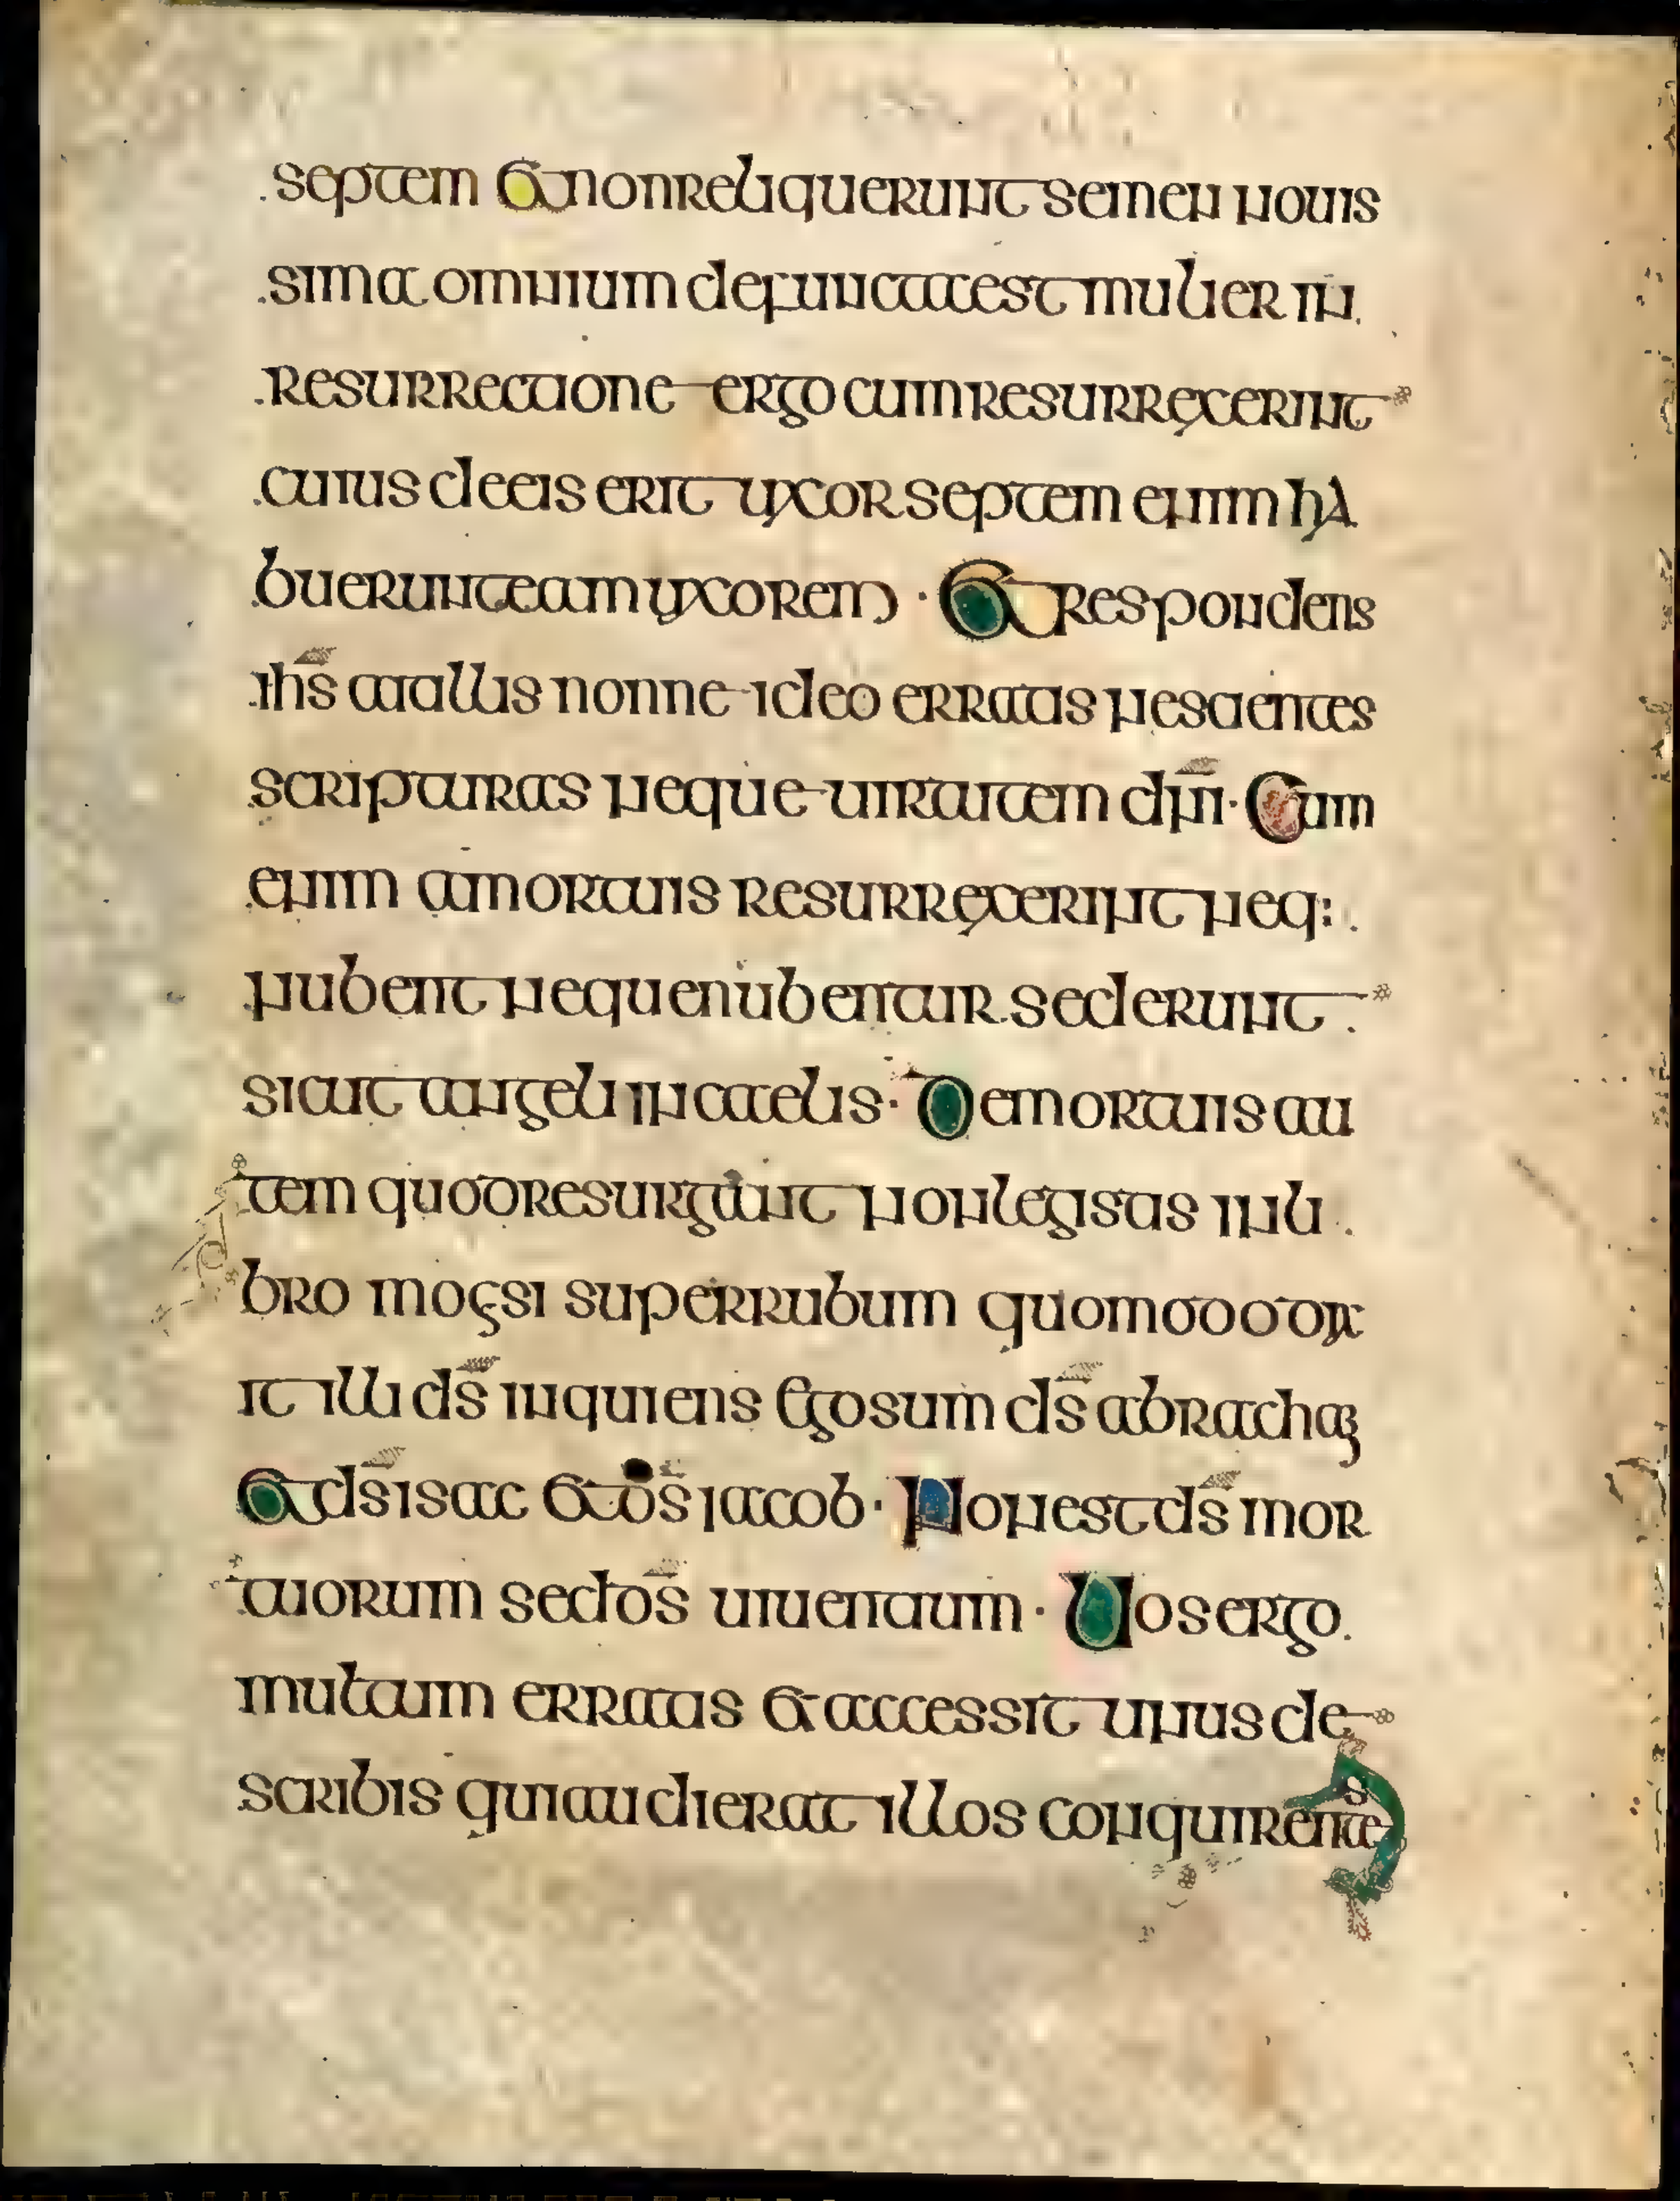 septem Et non reliquerunt semen nouis
sima omnium defuncta est mulier in
resurrectione ergo cum resurrexerint
cuius de eis erit uxor septem enim ha
buerunt eam uxorem · Et respondens
ihs ait illis nonne ideo erratis nescientes
scripturas neque uirtutem dni · Cum
enim a mortuis resurrexerint neq:
nubent neque nubentur sed erunt
sicut angeli in caelis · De mortuis au
tem quod resurgunt non legistis in li
bro moysi super rubum quomodo dix
it illi ds inquiens Ego sum ds abracham
Et ds isac Et ds iacob · Non est ds mor
tuorum sed ds uiuentium · Uos ergo
multum erratis Et accessit unus de
scribis qui audierat illos conquirentes